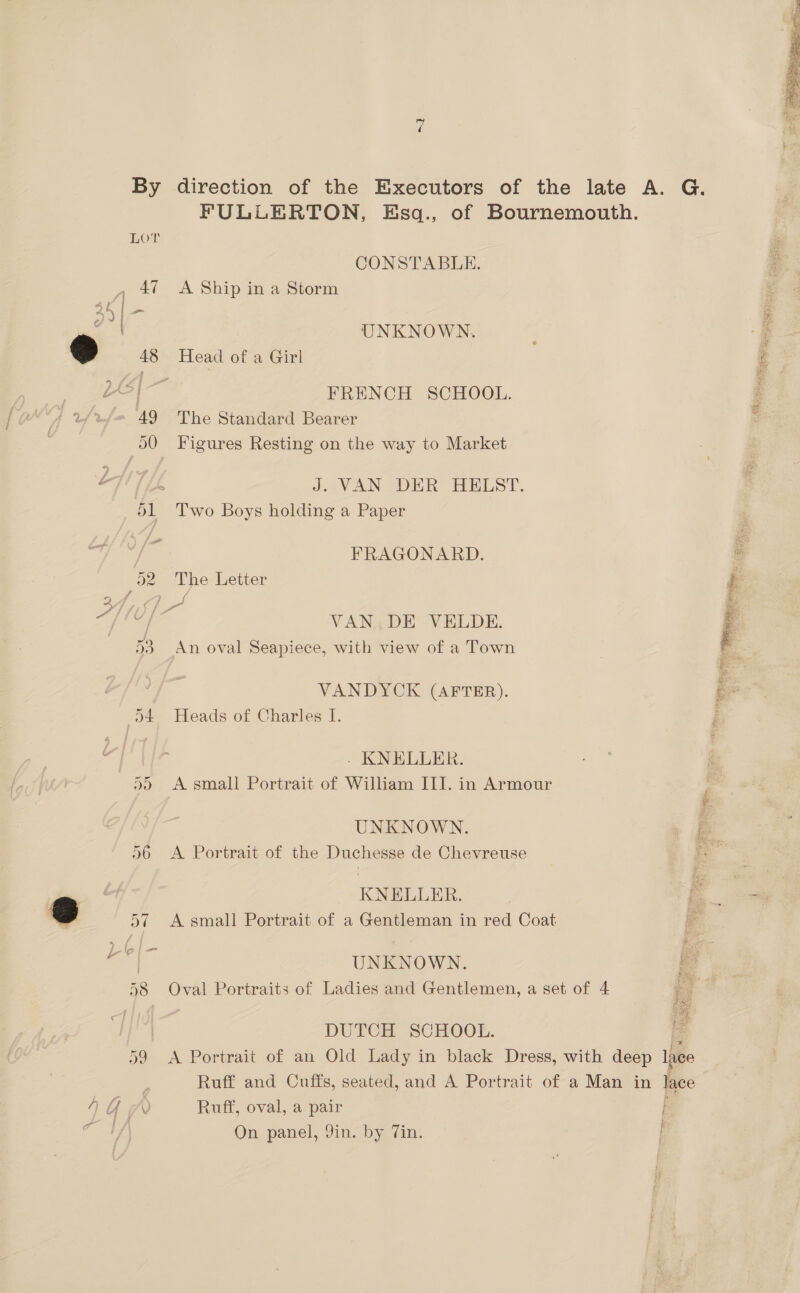 7
By direction of the Executors of the late A. G.
FULLERTON, Esq., of Bournemouth.
LOT
CONSTABLE.
47 A Ship in a Storm
UNKNOWN.
48 Head of a Girl
FRENCH SCHOOL.
49 The Standard Bearer
50 Figures Resting on the way to Market
J. VAN DER HELST.
51 Two Boys holding a Paper
FRAGONARD.
52 The Letter
VAN DE VELDE.
53 An oval Seapiece, with view of a Town
VANDYCK (AFTER).
54 Heads of Charles I.
KNELLER.
55 A small Portrait of William III. in Armour
UNKNOWN.
56 A Portrait of the Duchesse de Chevreuse
KNELLER.
57 A small Portrait of a Gentleman in red Coat
UNKNOWN.
58 Oval Portraits of Ladies and Gentlemen, a set of 4
DUTCH SCHOOL.
59 A Portrait of an Old Lady in black Dress, with deep lace
Ruff and Cuffs, seated, and A Portrait of a Man in lace
Ruff, oval, a pair
On panel, 9in. by 7in.